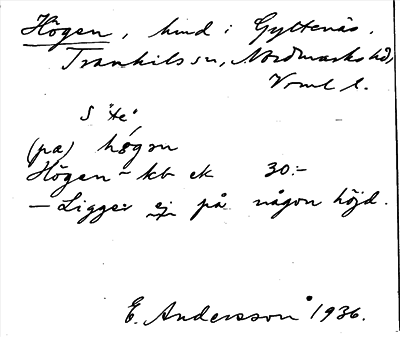 Högen, hmd i Gyltenäs,
Trankils sn, Nordmarks hd,
Vrml l.
S "te"
(pa) högon
Högen - kb ek 30:-
— Ligger ej på någon höjd.
E. Andersson 1936.